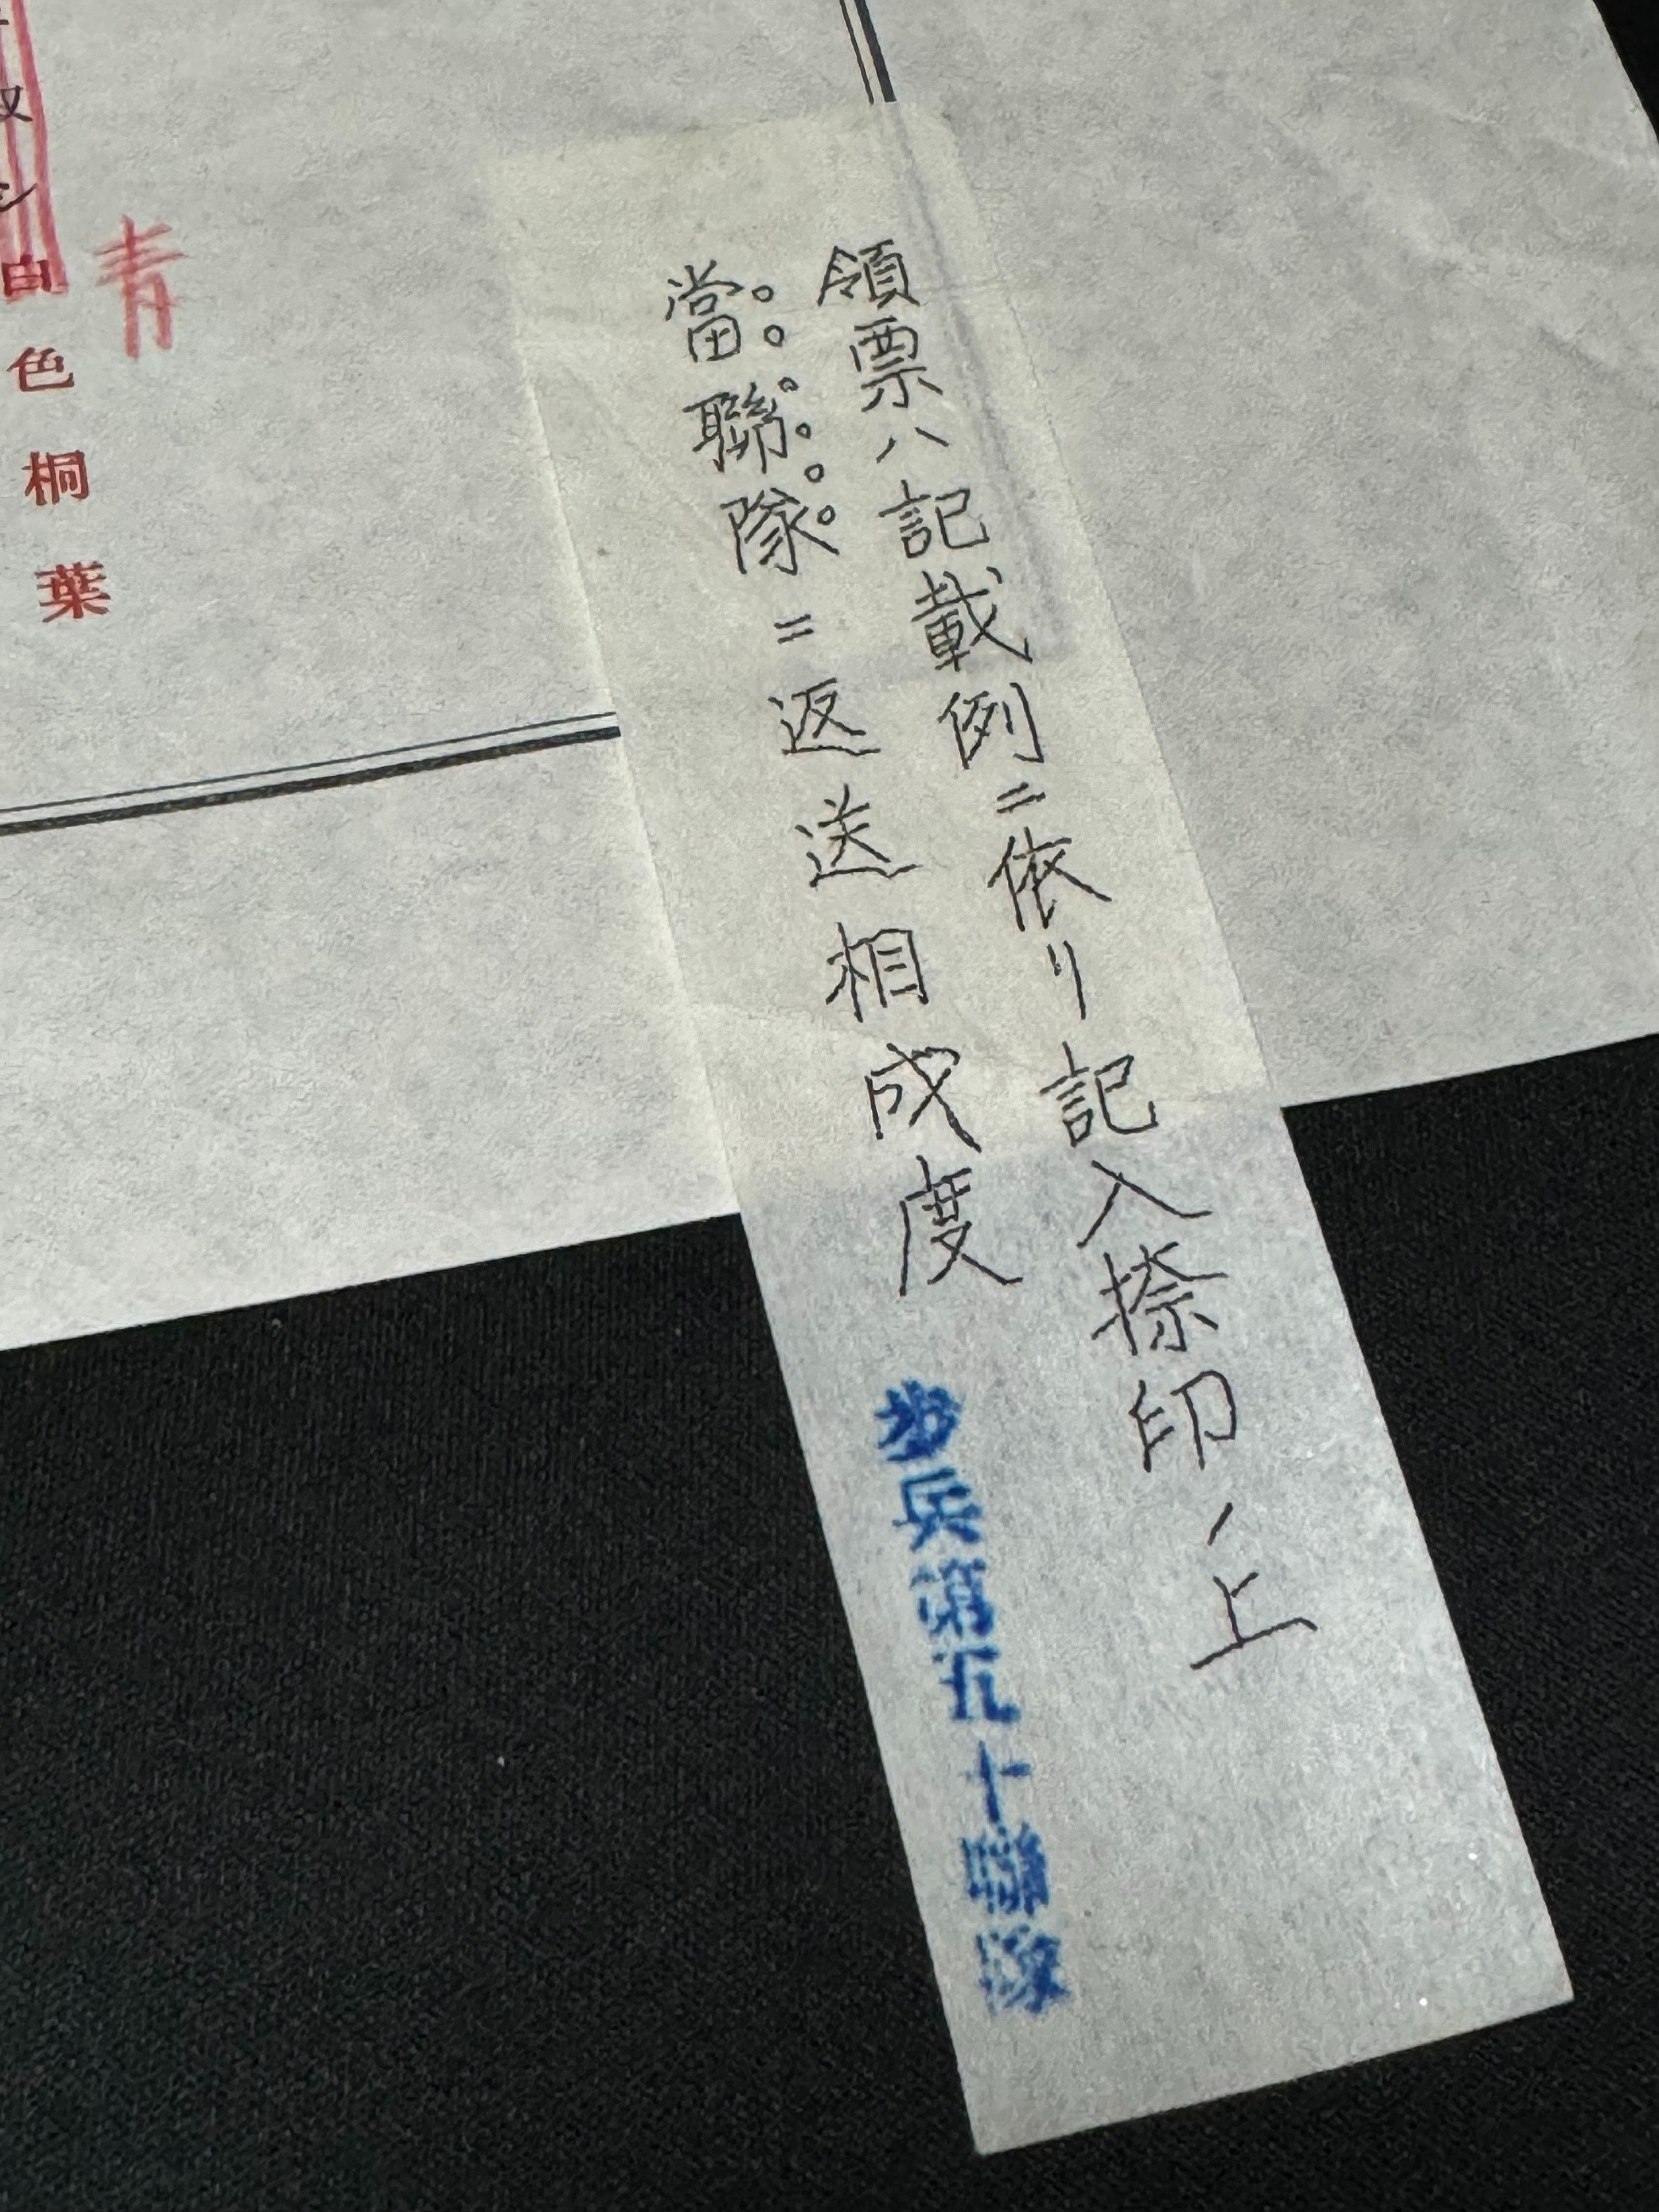 領票ハ記載例ニ依リ記入捺印ノ上
當聯隊ニ返送相成度
歩兵第五十聯隊
青
白色桐葉